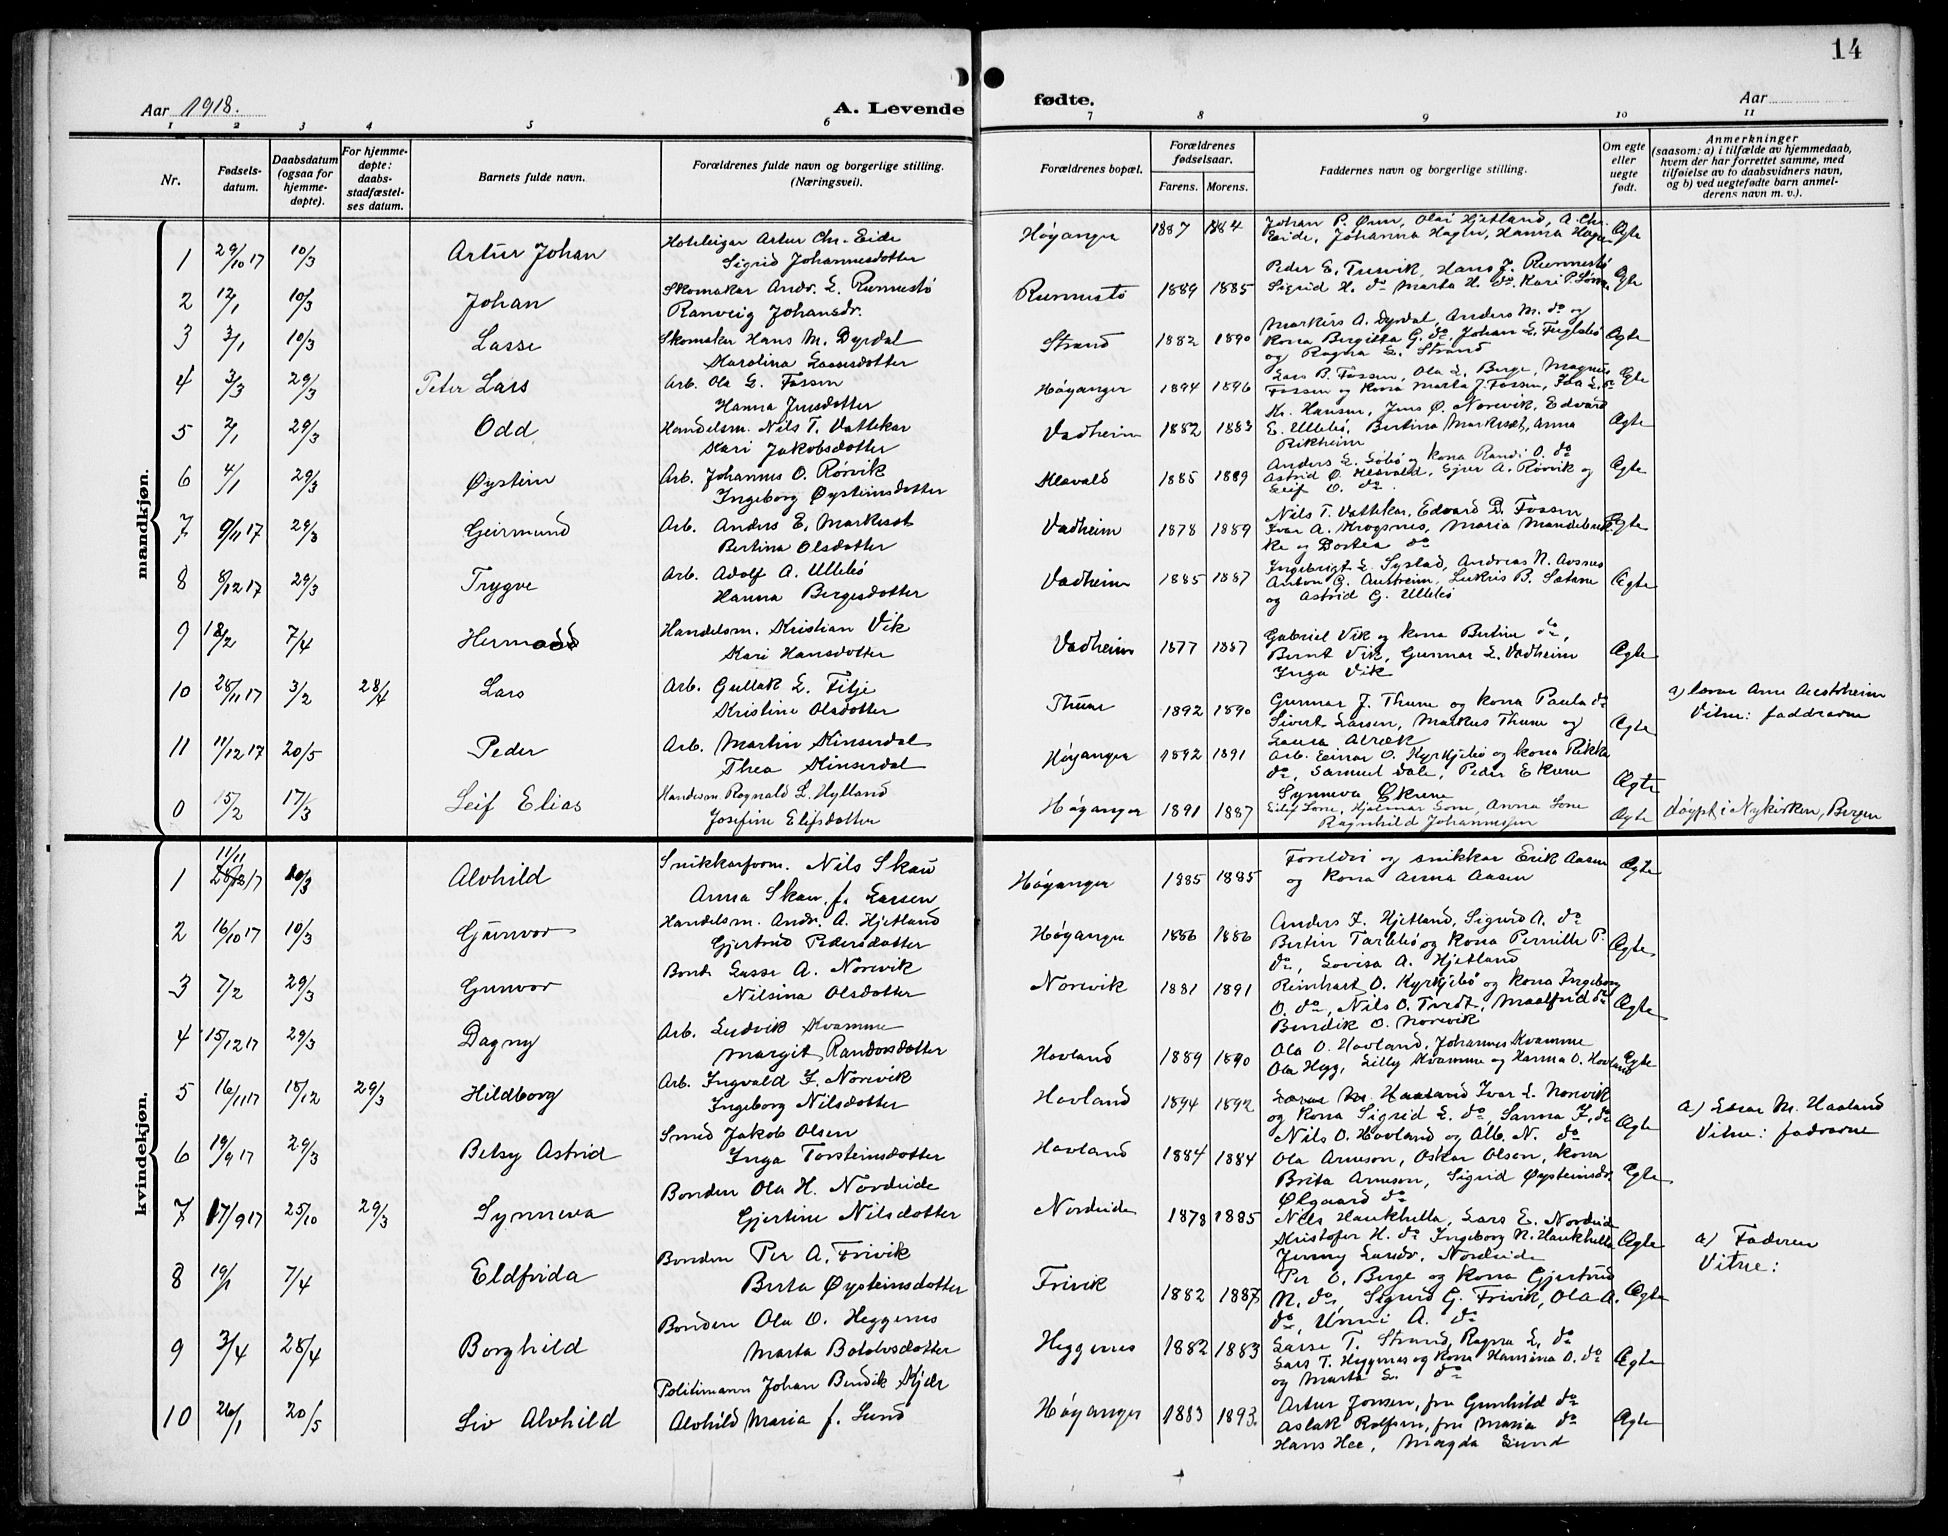 14
Aar 1918.
A. Levende fødte.
Aar
1 2 3 4 5 6 7 8 9 10 11
Nr.
Fødsels-
datum.
Daabsdatum
(ogsaa for
hjemme-
døpte).
For hjemme-
døpte:
daabs-
stadfæstel-
ses datum.
Barnets fulde navn.
Forældrenes fulde navn og borgerlige stilling.
(Næringsvei).
Forældrenes bopæl.
Forældrenes
fødselsaar.
Farens. Morens.
Faddernes navn og borgerlige stilling.
Om egte
eller
uegte
født.
Anmerkninger
(saasom: a) i tilfælde av hjemmedaab,
hvem der har forrettet samme, med
tilføielse av to daabsvidners navn,
og b) ved uegtefødte barn anmel-
derens navn m. v.).
mandkjøn.
1 29/10 17 10/3 Artur Johan Hoteleigar Artur Chr. Eide Høyanger 1887 1884 Johan P. Øren, Olai Hjetland, A. Chr. Ægte
Sigrid Johannesdotter Eide, Johanna Hagen, Hanna Hagen
2 12/1 10/3 Johan Skomakar Andr. L. Runnestø Runnestø 1889 1885 Peder E. Tusvik, Hans J. Runnestø Ægte
Ranveig Johansdr. Sigrid H. do Marta H. do. Kari P.
3 3/1 10/3 Lasse Skomakar Hans M. Dyrdal Strand 1882 1890 Markus A. Dyrdal, Anders M. do og Ægte
Karolina Lassesdotter kona Bergitha G. do, Johan L. Fuglebø
og Ragna L. Strand
4 3/3 29/3 Peter Lars Arb. Ola G. Fossen Høyanger 1894 1896 Lars B. Fossen, Ola L. Berge, Magnus Ægte
Hanna Jensdotter Fossen og kona Marta J. Fossen, Ida L. do
5 2/1 29/3 Odd Handelsm. Nils T. Vattekar Vadheim 1882 1883 Kr. Hansen, Jens Ø. Norevik, Edvard Ægte
Kari Jakobsdotter E. Ullebø, Bertina Markeset, Anna
Rikheim
6 4/1 29/3 Øystein Arb. Johannes O. Rørvik Klævold 1885 1889 Anders L. Søbø og kona Randi O. do Ægte
Ingeborg Øysteinsdotter Astrid O. Klævold, Gjer A. Rørvik og
Leif O. do.
7 9/11 17 29/3 Geirmund Arb. Anders E. Markeset Vadheim 1878 1889 Nils T. Vattekar, Edvard B. Fossen Ægte
Bertina Olsdotter Ivar A. Krogsnes, Maria
og Dortea do
8 8/12 17 29/3 Trygve Arb. Adolf A. Ullebø Vadheim 1885 1887 Ingebrigt L. Systad, Andreas N. Avsnes Ægte
Hanna Bergesdotter Anton G. Austreim, Lukris B. Sætane
og Astrid G. Ullebø
9 18/2 7/4 Hermod Handelsm. Kristian Vik Vadheim 1877 1887 Gabriel Vik og kona Bertine do, Ægte
Kari Hansdotter Bernt Vik, Gunnar L. Vadheim
Inga Vik
10 28/11 17 3/2 28/4 Lars Arb. Gullak L. Fitje Thune 1892 1890 Gunnar J. Thune og kona Paula do Ægte a) lærar Arne Aestoheim
Kristine Olsdotter Sivert Larsen, Markus Thune og Vitne: faddrarne
Laura Alræk
11 11/12 17 20/5 Peder Arb. Martin Kinserdal Høyanger 1892 1891 Arb. Einar O. Kyrkjebø og kona Rikka Ægte
Thea Kinserdal do, Samuel Dale, Peder Ekrene
Synneva Ekrene
0 15/2 17/3 Leif Elias Handelsm Ragnald L. Hylland Høyanger 1891 1887 Eilif Lone, Hjalmar Lone, Anna Lone Ægte døypt i Nykirken, Bergen
Josefine Elifsdotter Ragnhild Johannesen
kvindekjøn.
1 11/11 17 10/3 Alvhild Snikkarform. Nils Skau Høyanger 1885 1885 Foreldri og snikkar Erik Aasen Ægte
Anna Skau f. Larsen og kona Anna Aasen
2 16/10 17 10/3 Gunvor Handelsm. Andr. A. Hjetland Høyanger 1886 1886 Anders I. Hjetland, Sigurd A. do Ægte
Gjertrud Pedersdotter Bertin Tarlebø og kona Pernille P.
do, Lovisa A. Hjetland
3 7/2 29/3 Gunvor Bond. Lasse A. Norevik Norevik 1881 1891 Reinhart O. Kyrkjebø og kona Ingeborg Ægte
Nilsina Olsdotter O. do, Nils O. Tredt, Maalfrid do
Bendik O. Norevik
4 15/12 17 29/3 Dagny Arb. Ludvik Kvamme Hovland 1889 1890 Ola O. Hovland, Johannes Kvamme Ægte
Margit Randorsdotter Ola Hegg, Lilly Kvamme og Hanna O. Hovland
5 16/11 17 18/12 29/3 Hildborg Arb. Ingvald I. Norevik Hovland 1894 1892 Lærar M. Haaland Ivar L. Norevik Ægte a) Lærar M. Haaland
Ingeborg Nilsdotter og kona Sigrid L. do, Sanna I. do Vitne: fadrarne
Nils O. Hovland og Alb. N. do
6 19/9 17 29/3 Betsy Astrid Smed Jakob Olsen Hovland 1884 1884 Ola Arneson, Oskar Olsen, kona Ægte
Inga Torsteinsdotter Brita Arneson, Sigrid Øysteinsdr.
Ølgaard do
7 17/9 17 25/10 29/3 Synneva Bonden Ola H. Nordeide Nordeide 1878 1885 Nils Haukhella, Lars E. Nordeide Ægte a) Faderen
Gjertine Nilsdotter Kristofer H. do Ingeborg N. Haukhella Vitne:
Jenny Larsdr. Nordeide
8 19/1 7/4 Eldfrida Bonden Per A. Frivik Frivik 1882 1887 Per O. Berge og kona Gjertrud Ægte
Berta Øysteinsdotter N. do, Sigurd G. Frivik, Ola A.
do, Unni A. do
9 3/4 28/4 Borghild Bonden Ola O. Heggenes Heggenes 1882 1883 Lasse T. Strand, Ragna L. do Ægte
Marta Botolvsdotter Lars T. Heggenes og kona Hansina O. do
og Marta L. do
10 26/1 20/5 Liv Alvhild Politimann Johan Bendik Kjær Høyanger 1883 1893 Artur Jonsen, fru Gunhild do Ægte
Alvhild Maria f. Lund Aslak Rolfsen, fru Maria do
Hans Hee, Magda Lund